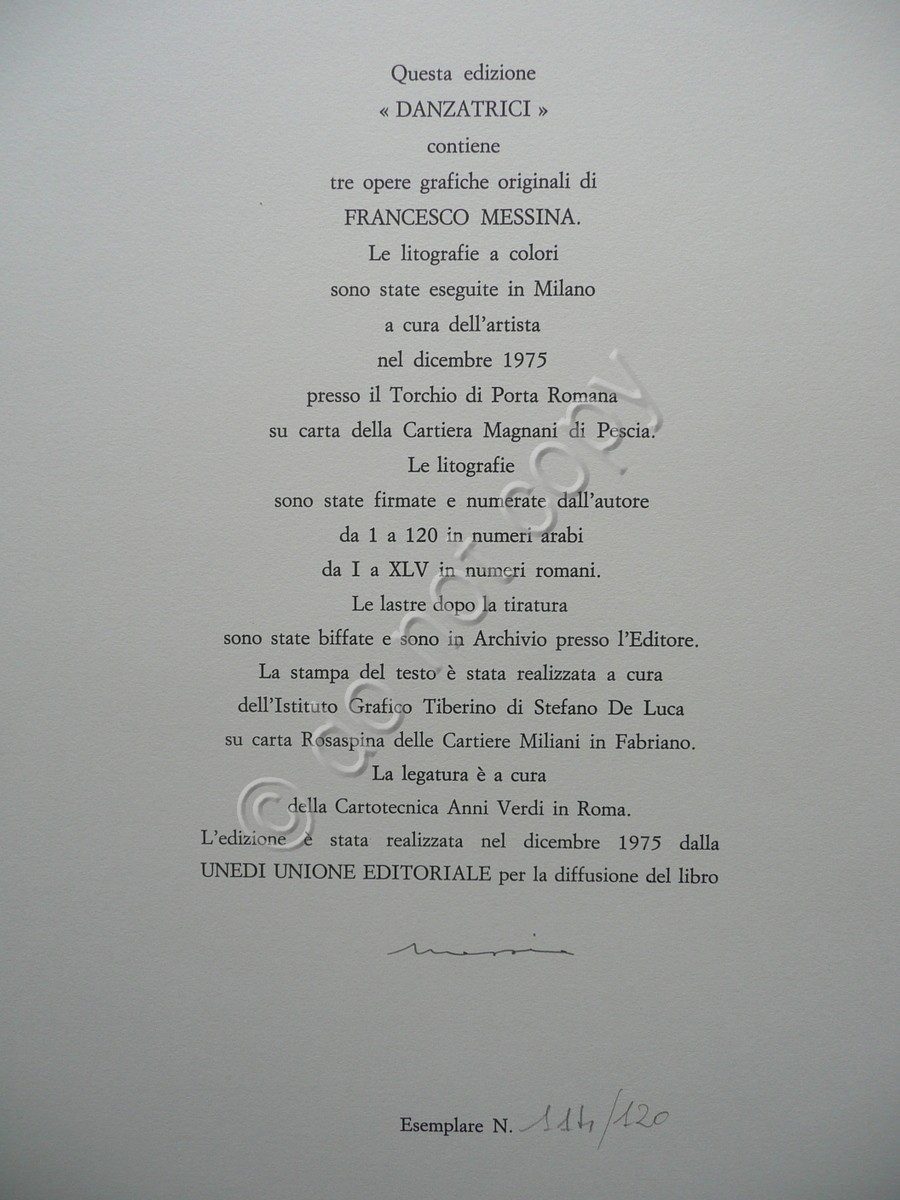 Questa edizione
« DANZATRICI »
contiene
tre opere grafiche originali di
FRANCESCO MESSINA.
Le litografie a colori
sono state eseguite in Milano
a cura dell'artista
nel dicembre 1975
presso il Torchio di Porta Romana
su carta della Cartiera Magnani di Pescia.
Le litografie
sono state firmate e numerate dall'autore
da 1 a 120 in numeri arabi
da I a XLV in numeri romani.
Le lastre dopo la tiratura
sono state biffate e sono in Archivio presso l'Editore.
La stampa del testo è stata realizzata a cura
dell'Istituto Grafico Tiberino di Stefano De Luca
su carta Rosaspina delle Cartiere Miliani in Fabriano.
La legatura è a cura
della Cartotecnica Anni Verdi in Roma.
L'edizione è stata realizzata nel dicembre 1975 dalla
UNEDI UNIONE EDITORIALE per la diffusione del libro
Messina
Esemplare N. 114/120
© do not copy